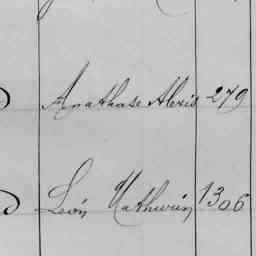 Anathase Alexis 279
León Mathurin 1306